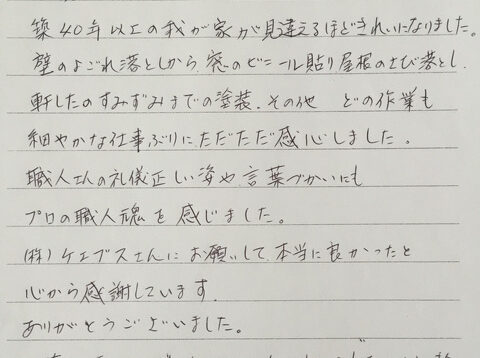 築40年以上の我が家が見違えるほどきれいになりました。
壁のよごれ落としから、窓のビニール貼り屋根のさび落とし、
軒したのすみずみまでの塗装、その他 どの作業も
細やかな仕事ぶりにただただ感心しました。
職人さんの礼儀正しい姿や、言葉づかいにも
プロの職人魂を感じました。
(株)ケェブスさんにお願いして、本当に良かったと
心から感謝しています。
ありがとうございました。